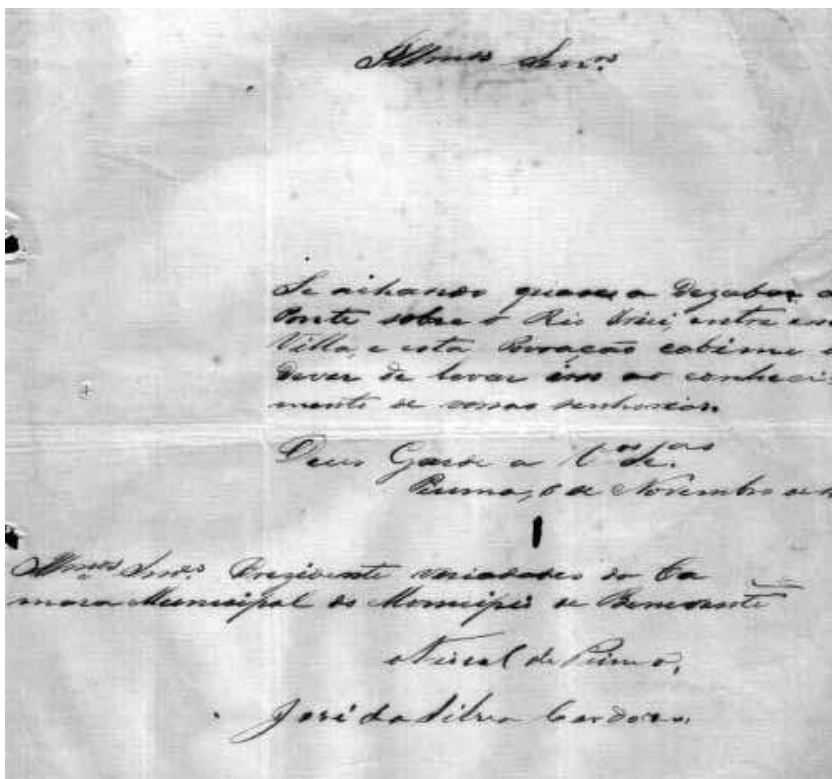 Illmos Senrs
Se achando quase a Dezabar a
Ponte sobre o Rio entre
Villa, e esta Povoação cabime o
dever de levar isso ao conheci
mento de vossas senhorias
Deus Garde a
Piuma, 6 de Novembro de
Illmos Snrs Prezidente veriadores da Ca
mara Municipal do Monicipio de Benevente
Fiscal de Piuma,
José da Silva Cardozo.